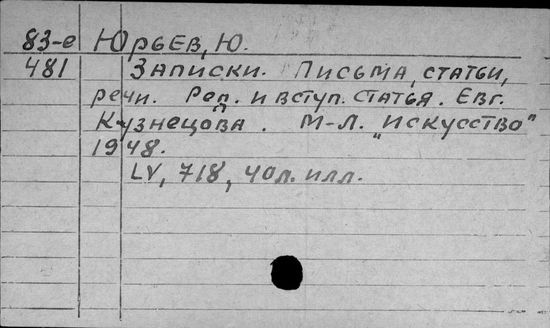 83-е Юрьев, Ю.
481 Записки. Письма, статьи,
речи. Ред. и вступ. статья. Евг.
Кузнецова. М-Л. "Искусство"
1948.
LV, 718, 40л. илл.